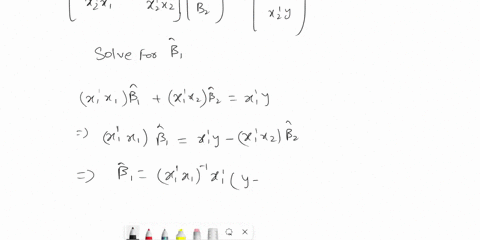 [ x₂'x₁ x₂'x₂ ] ( β₂ ) ( x₂'y )
Solve for β̂₁
(x₁'x₁)β̂₁ + (x₁'x₂)β̂₂ = x₁'y
=> (x₁'x₁) β̂₁ = x₁'y - (x₁'x₂) β̂₂
=> β̂₁ = (x₁'x₁)⁻¹ x₁' ( y -